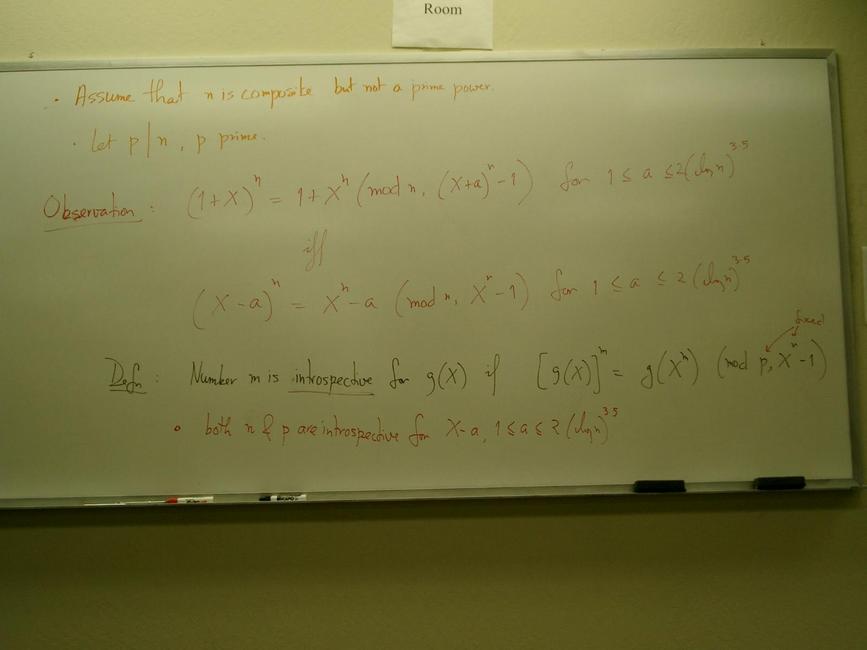 Room
· Assume that n is composite but not a prime power.
· Let p | n, p prime.
Observation: (1+X)^n = 1+X^n (mod n, (X+a)^r - 1) for 1 ≤ a ≤ 2(log n)^3.5
iff
(X-a)^n = X^n - a (mod n, X^r - 1) for 1 ≤ a ≤ 2(log n)^3.5
fixed
Defn: Number m is introspective for g(X) if [g(X)]^m = g(X^m) (mod p, X^r - 1)
• both n & p are introspective for X-a, 1 ≤ a ≤ 2(log n)^3.5